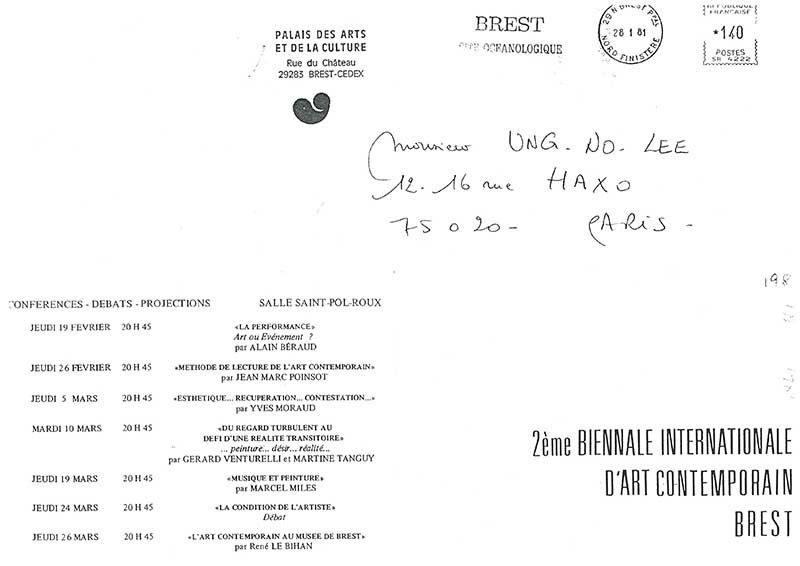 PALAIS DES ARTS
ET DE LA CULTURE
Rue du Château
29283 BREST-CEDEX
BREST
OCEANOLOGIQUE
29N BREST PPAL
28 1 81
NORD FINISTERE
REPUBLIQUE
FRANCAISE
*140
POSTES
SR 4222
Monsieur UNG-NO-LEE
12.16 rue HAXO
75020- PARIS-
198
CONFERENCES - DEBATS - PROJECTIONS SALLE SAINT-POL-ROUX
JEUDI 19 FEVRIER 20 H 45 «LA PERFORMANCE»
Art ou Evénement ?
par ALAIN BÉRAUD
JEUDI 26 FEVRIER 20 H 45 «METHODE DE LECTURE DE L'ART CONTEMPORAIN»
par JEAN MARC POINSOT
JEUDI 5 MARS 20 H 45 «ESTHETIQUE... RECUPERATION... CONTESTATION...»
par YVES MORAUD
MARDI 10 MARS 20 H 45 «DU REGARD TURBULENT AU
DEFI D'UNE REALITE TRANSITOIRE»
... peinture... désir... réalité...
par GERARD VENTURELLI et MARTINE TANGUY
JEUDI 19 MARS 20 H 45 «MUSIQUE ET PEINTURE»
par MARCEL MILES
JEUDI 24 MARS 20 H 45 «LA CONDITION DE L'ARTISTE»
Débat
JEUDI 26 MARS 20 H 45 «L'ART CONTEMPORAIN AU MUSEE DE BREST»
par René LE BIHAN
2ème BIENNALE INTERNATIONALE
D'ART CONTEMPORAIN
BREST